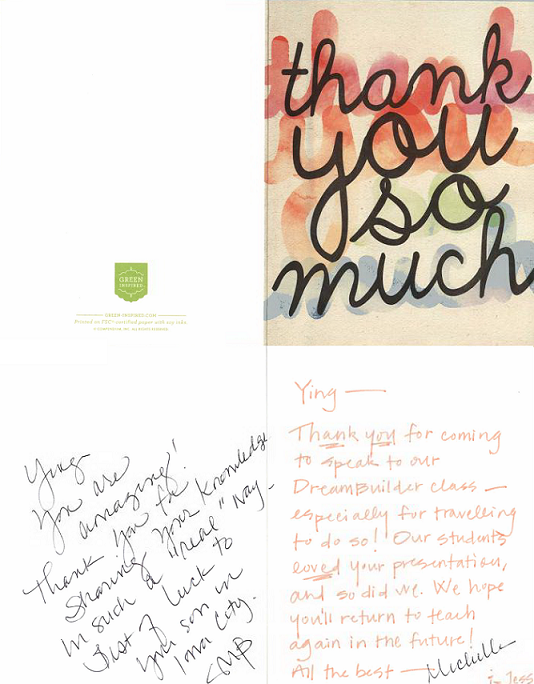 thank
you
so
much
GREEN
INSPIRED
GREEN-INSPIRED.COM
Printed on FSC®-certified paper with soy inks
Ying-
You are
amazing!
Thank you for
Sharing your knowledge
in such a "real" way -
Best of luck to
your son in
Iowa City.
Ying —
Thank you for coming
to speak to our
DreamBuilder class —
especially for travelling
to do so! Our students
loved your presentation,
and so did we. We hope
you'll return to teach
again in the future!
All the best — Michelle
Jess